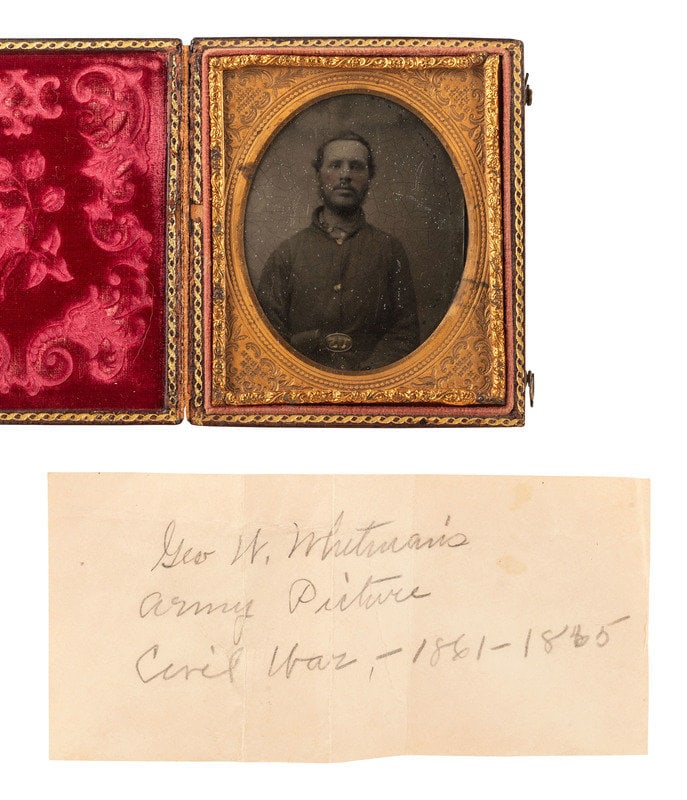 Geo W. Whitman's
Army Picture
Civil War, - 1861 - 1865